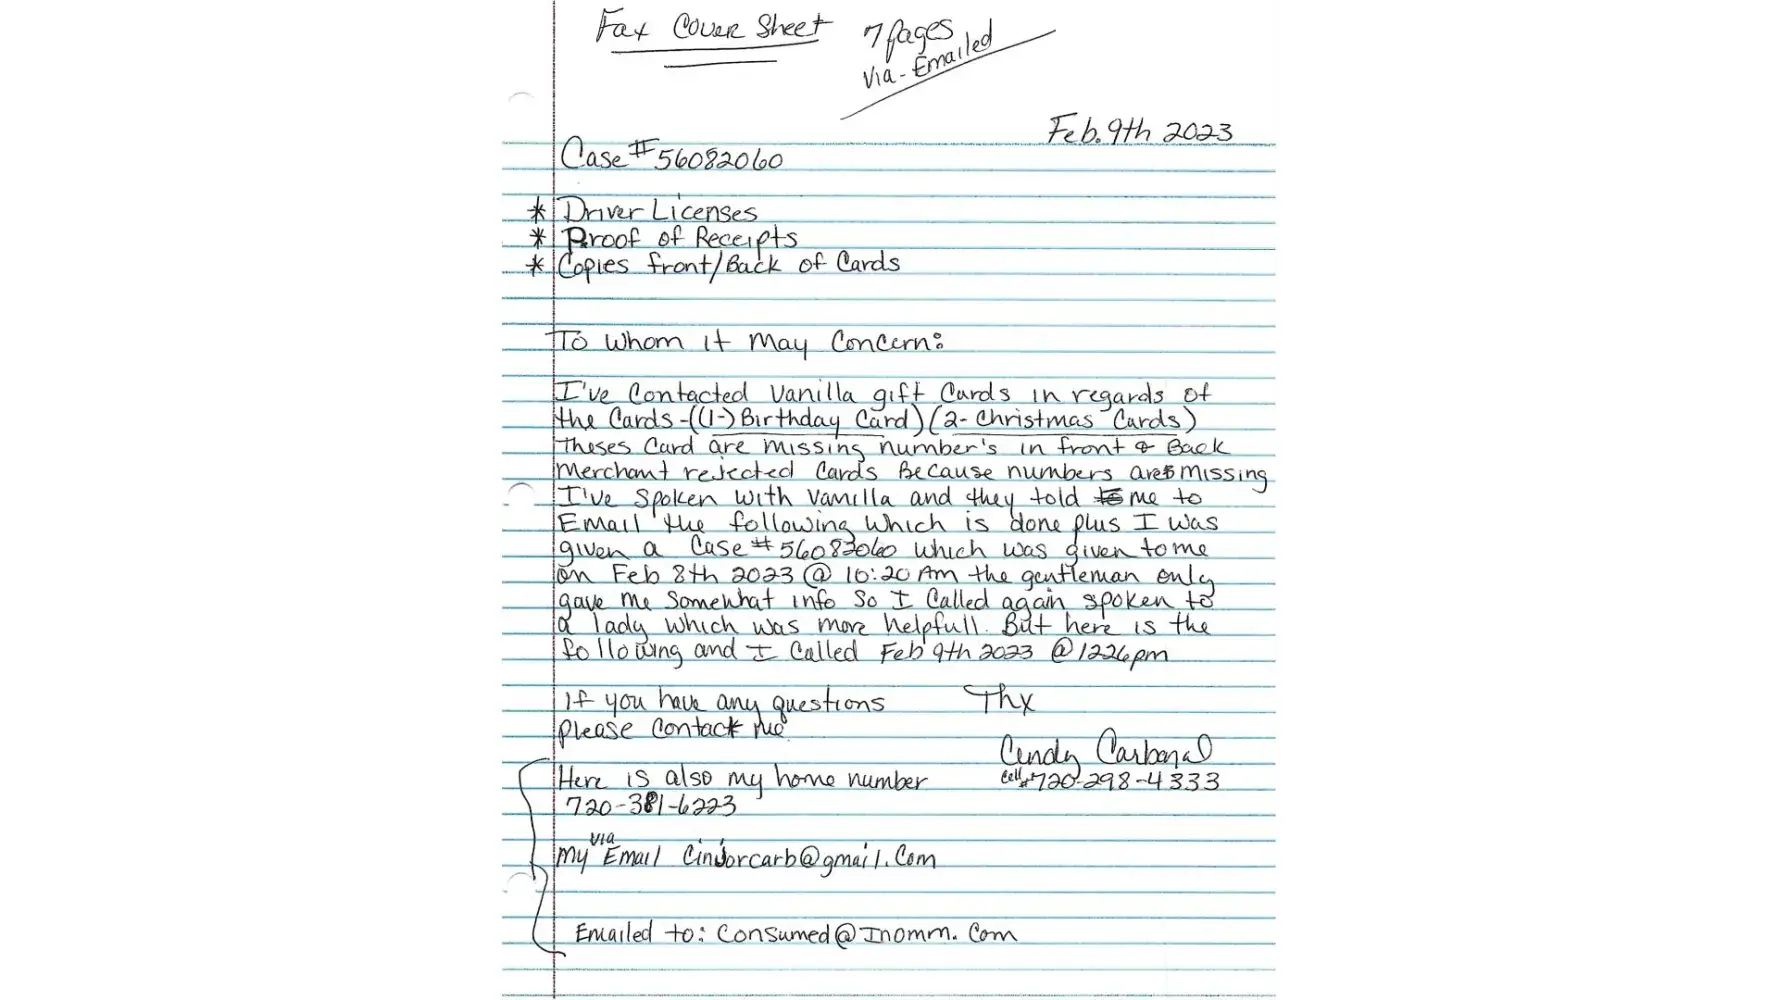 Fax Cover Sheet
7 pages
Via - Emailed
Feb. 9th 2023
Case # 56082060
* Driver Licenses
* Proof of Receipts
* Copies front/Back of Cards
To Whom it May Concern:
I've Contacted Vanilla gift Cards in regards of
the Cards - ((1-) Birthday Card) (2- Christmas Cards)
Theses Card are missing number's in front & Back
Merchant rejected Cards Because numbers are missing
I've Spoken with Vanilla and they told me to
Email the following which is done plus I was
given a Case # 56082060 which was given to me
on Feb 8th 2023 @ 10:20 Am the gentleman only
gave me Somewhat info So I Called again spoken to
a lady which was more helpfull. But here is the
following and I Called Feb 9th 2023 @ 1226pm
If you have any questions
Thx
please Contact me
Cindy Carbajal
Cell# 720-298-4333
Here is also my home number
720-381-6223
via
My Email Cindorcarb@gmail.Com
Emailed to: Consumed@Inomm.Com